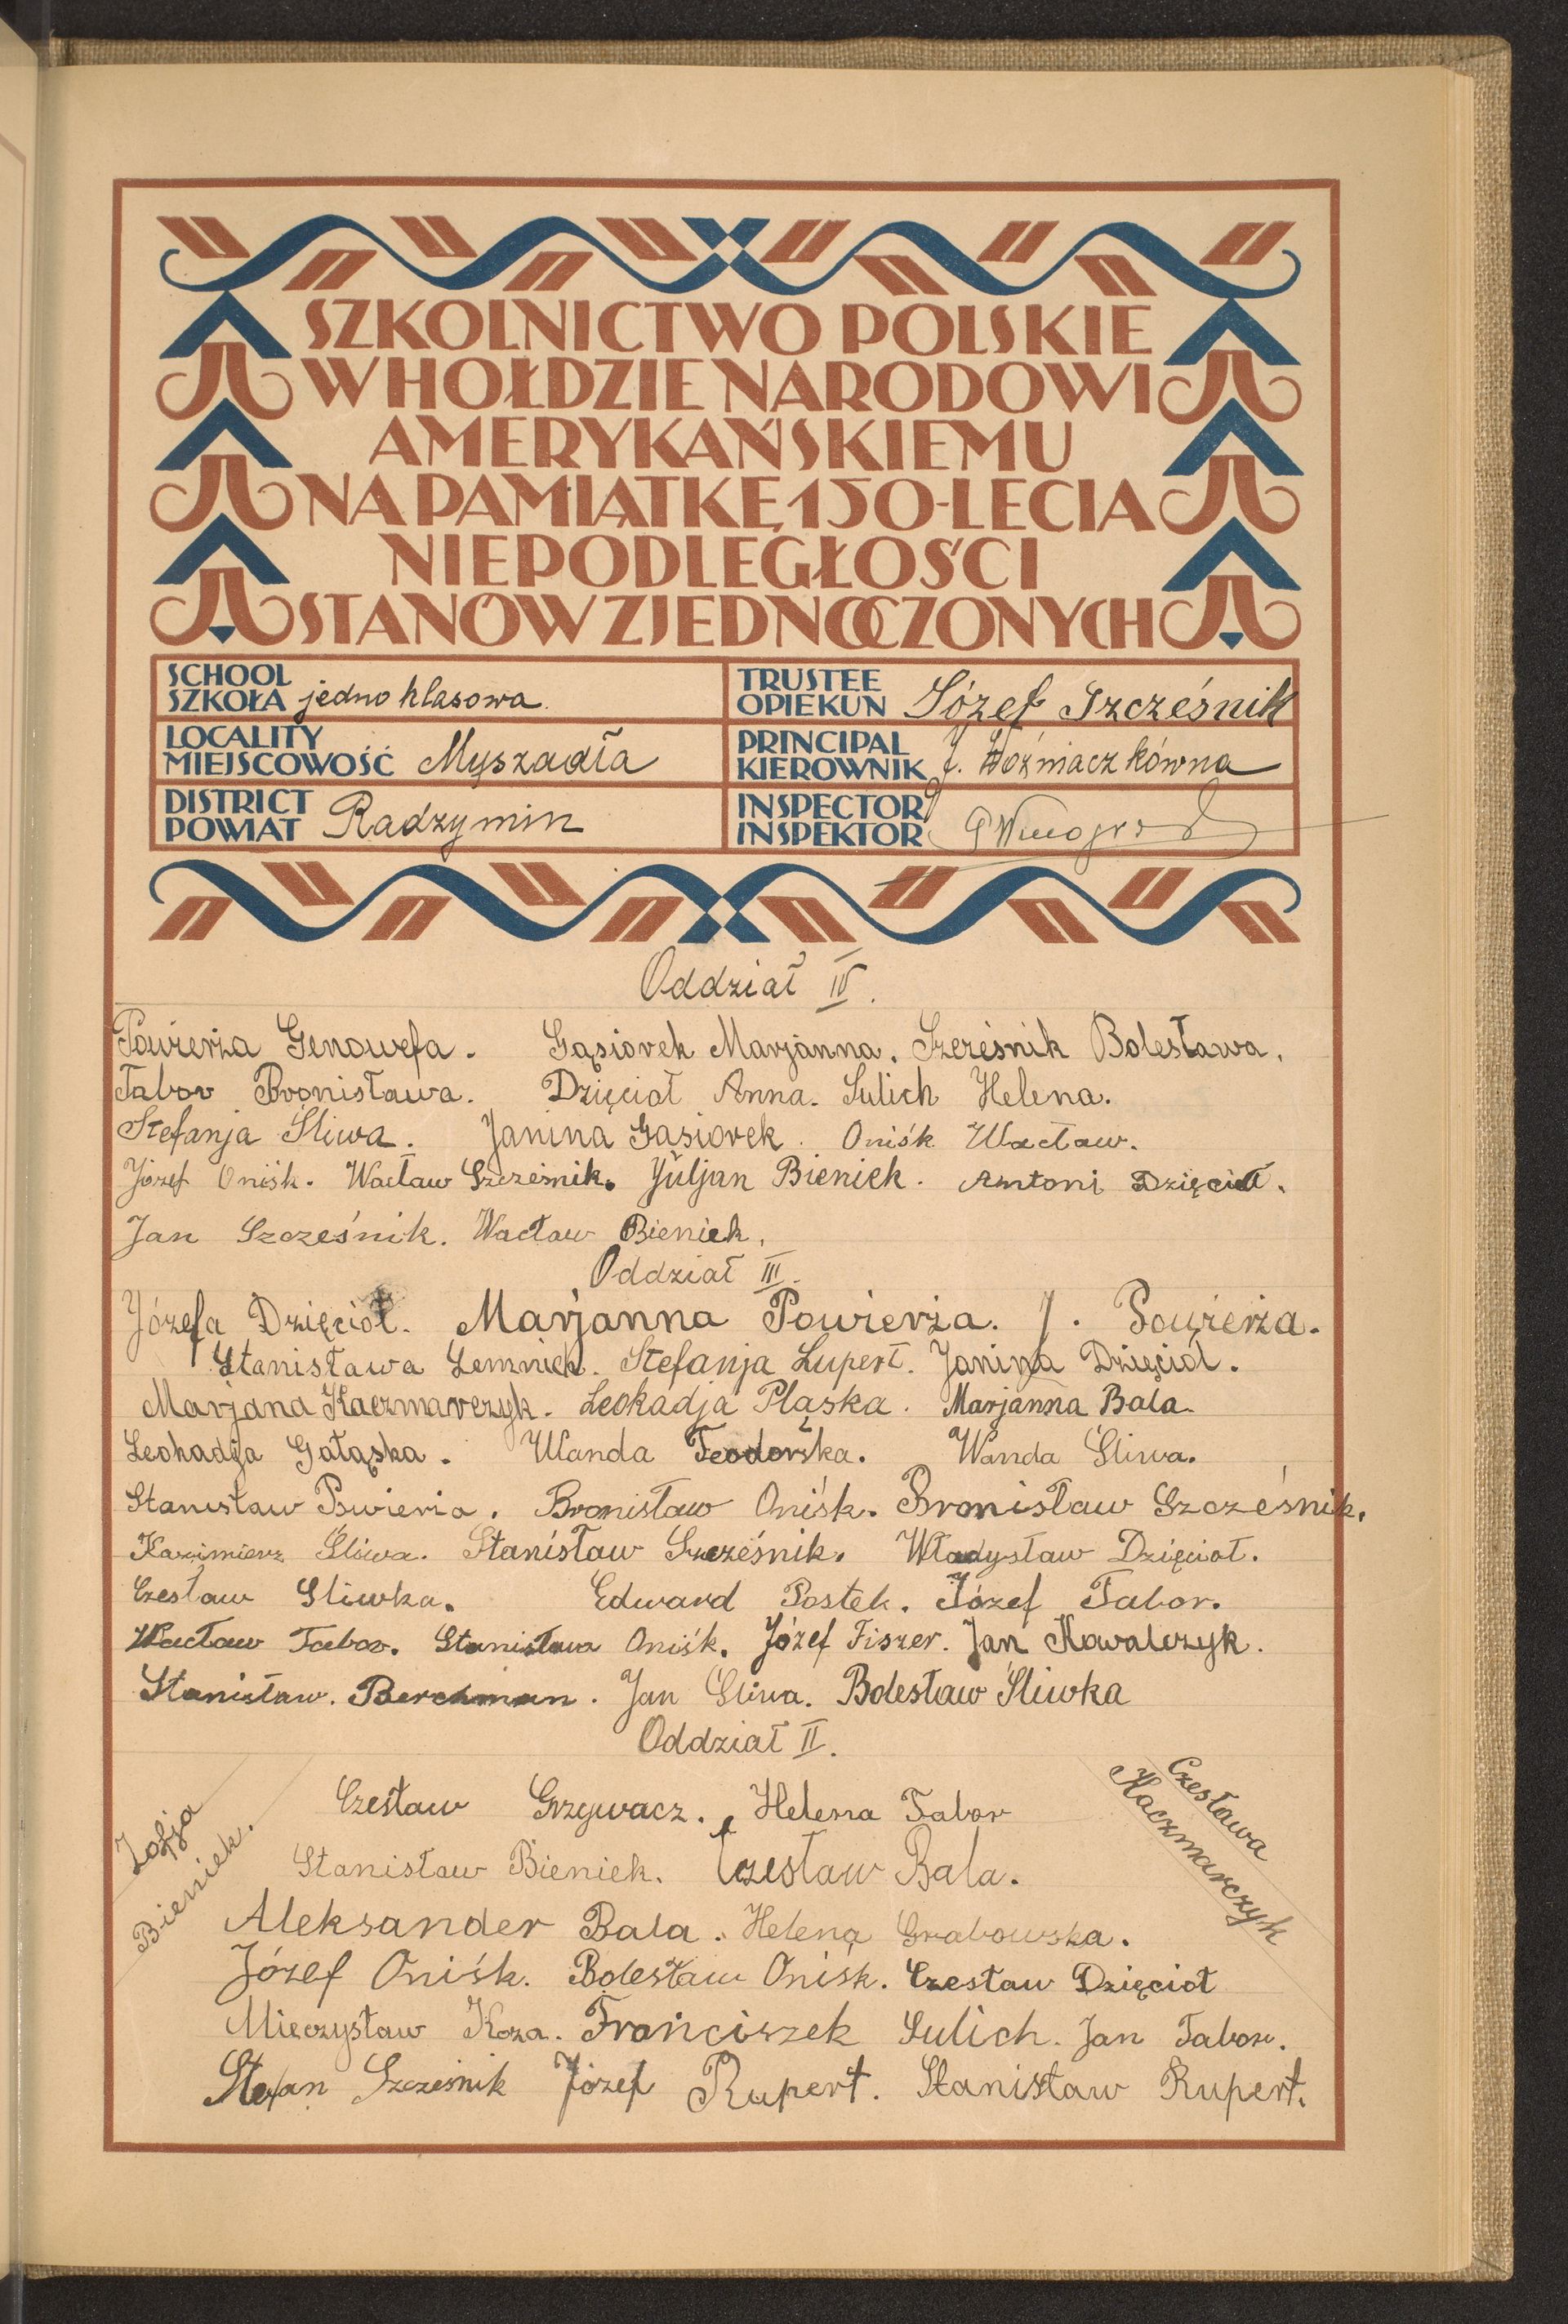 SZKOLNICTWO POLSKIE
W HOŁDZIE NARODOWI
AMERYKAŃSKIEMU
NA PAMIĄTKĘ 150-LECIA
NIEPODLEGŁOŚCI
STANÓW ZJEDNOCZONYCH
SCHOOL
SZKOŁA jednoklasowa.
TRUSTEE
OPIEKUN Józef Szcześnik
LOCALITY
MIEJSCOWOŚĆ Myszadła
PRINCIPAL
KIEROWNIK J. Woźniaczkówna
DISTRICT
POWIAT Radzymin
INSPECTOR
INSPEKTOR
Oddział IV.
Powierża Genowefa. Gąsiorek Marjanna. Szcześnik Bolesława.
Tabor Bronisława. Dzięcioł Anna. Sulich Helena.
Stefanja Śliwa. Janina Gąsiorek. Oniśk Wacław.
Józef Oniśk. Wacław Szcześnik. Juljan Bieniek. Antoni Dzięcioł.
Jan Szcześnik. Wacław Bieniek.
Oddział III.
Józefa Dzięcioł. Marjanna Powierża. J. Powierża.
Stanisława Stefanja Lupert. Janina Dzięcioł.
Marjana Kaczmarczyk. Leokadja Pląska. Marjanna Bala.
Leokadja Gołąska. Wanda Teodorska. Wanda Śliwa.
Stanisław Powierża. Bronisław Oniśk. Bronisław Szcześnik.
Kazimierz Śliwa. Stanisław Szcześnik. Władysław Dzięcioł.
Czesław Sliwka. Edward Postek. Józef Tabor.
Wacław Tabor. Stanisław Oniśk. Józef Fiszer. Jan Kowalczyk.
Stanisław. Berchman. Jan Śliwa. Bolesław Śliwka
Oddział II.
Zofja
Bieniek.
Czesława
Kaczmarczyk
Czesław Grzywacz. Helena Tabor
Stanisław Bieniek. Czesław Bala.
Aleksander Bala. Helena Grabowska.
Józef Oniśk. Bolesław Oniśk. Czesław Dzięcioł
Mieczysław Koza. Franciszek Sulich. Jan Tabor.
Stefan Szcześnik Józef Rupert. Stanisław Rupert.